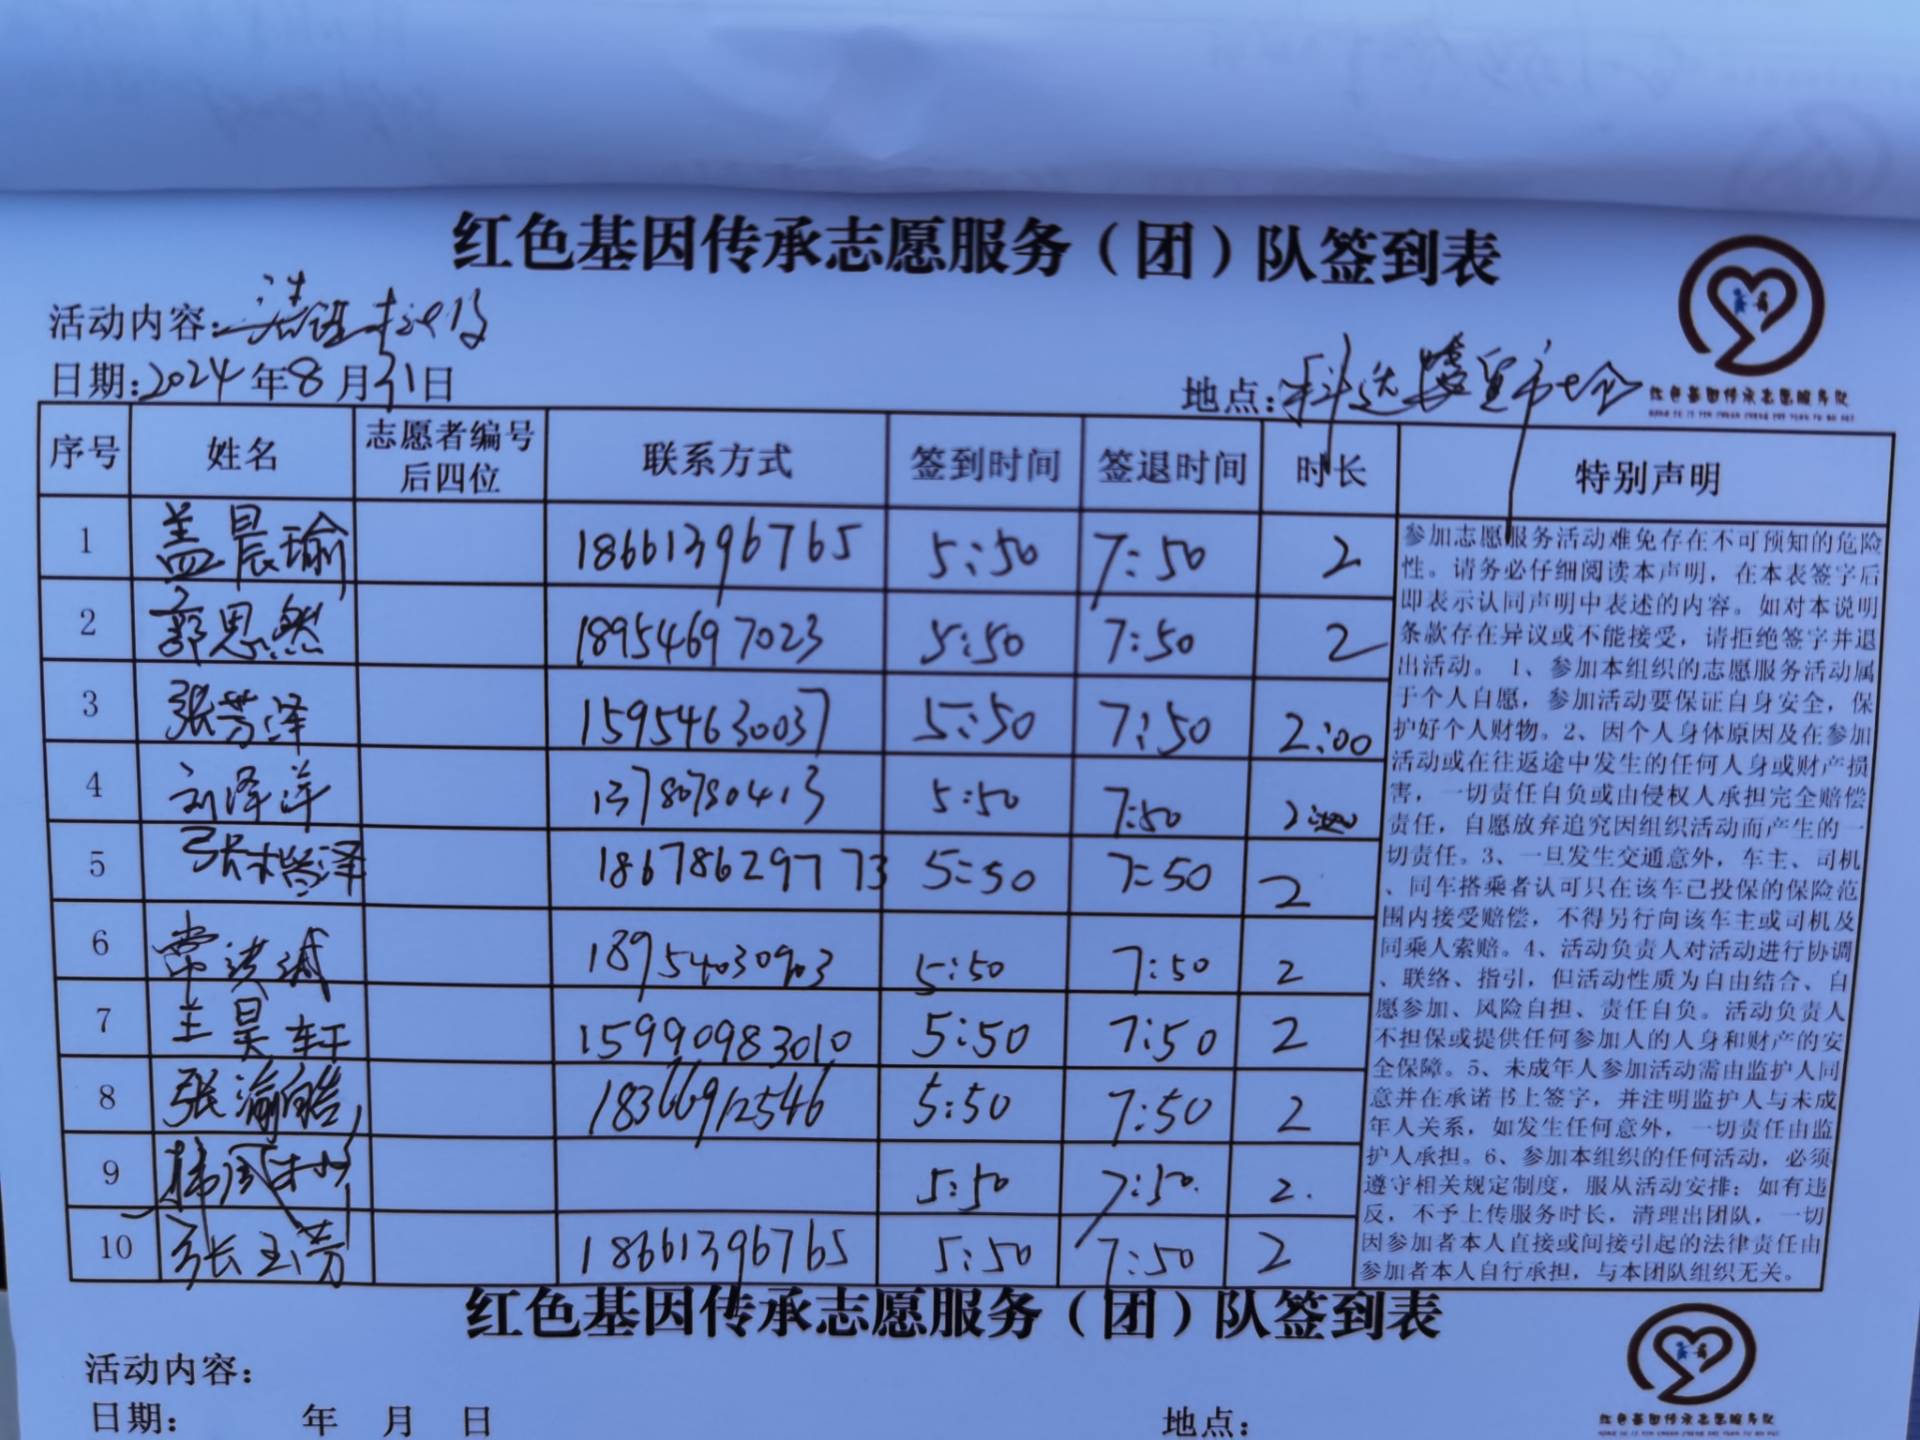 红色基因传承志愿服务（团）队签到表
活动内容:清理
日期:2024年8月31日
地点:
红色基因传承志愿服务队
序号 姓名 志愿者编号后四位 联系方式 签到时间 签退时间 时长 特别声明
1 盖晨瑜 18661396765 5:50 7:50 2
2 郭思然 18954697023 5:50 7:50 2
3 张芳泽 15954630037 5:50 7:50 2:00
4 刘泽洋 13780780413 5:50 7:50
5 张楷泽 18678629773 5:50 7:50 2
6 常洪斌 18954030903 5:50 7:50 2
7 兰昊轩 15990983010 5:50 7:50 2
8 张渝皓 18366912546 5:50 7:50 2
9 5:50 7:50. 2.
10 张玉芳 18661396765 5:50 7:50 2
参加志愿服务活动难免存在不可预知的危险
性。请务必仔细阅读本声明，在本表签字后
即表示认同声明中表述的内容。如对本说明
条款存在异议或不能接受，请拒绝签字并退
出活动。 1、参加本组织的志愿服务活动属
于个人自愿，参加活动要保证自身安全，保
护好个人财物。2、因个人身体原因及在参加
活动或在往返途中发生的任何人身或财产损
害，一切责任自负或由侵权人承担完全赔偿
责任，自愿放弃追究因组织活动而产生的一
切责任。3、一旦发生交通意外，车主、司机
、同车搭乘者认可只在该车已投保的保险范
围内接受赔偿，不得另行向该车主或司机及
同乘人索赔。4、活动负责人对活动进行协调
、联络、指引，但活动性质为自由结合、自
愿参加、风险自担、责任自负。活动负责人
不担保或提供任何参加人的人身和财产的安
全保障。5、未成年人参加活动需由监护人同
意并在承诺书上签字，并注明监护人与未成
年人关系，如发生任何意外，一切责任由监
护人承担。6、参加本组织的任何活动，必须
遵守相关规定制度，服从活动安排；如有违
反，不予上传服务时长，清理出团队，一切
因参加者本人直接或间接引起的法律责任由
参加者本人自行承担，与本团队组织无关。
红色基因传承志愿服务（团）队签到表
活动内容:
日期: 年 月 日
地点:
红色基因传承志愿服务队